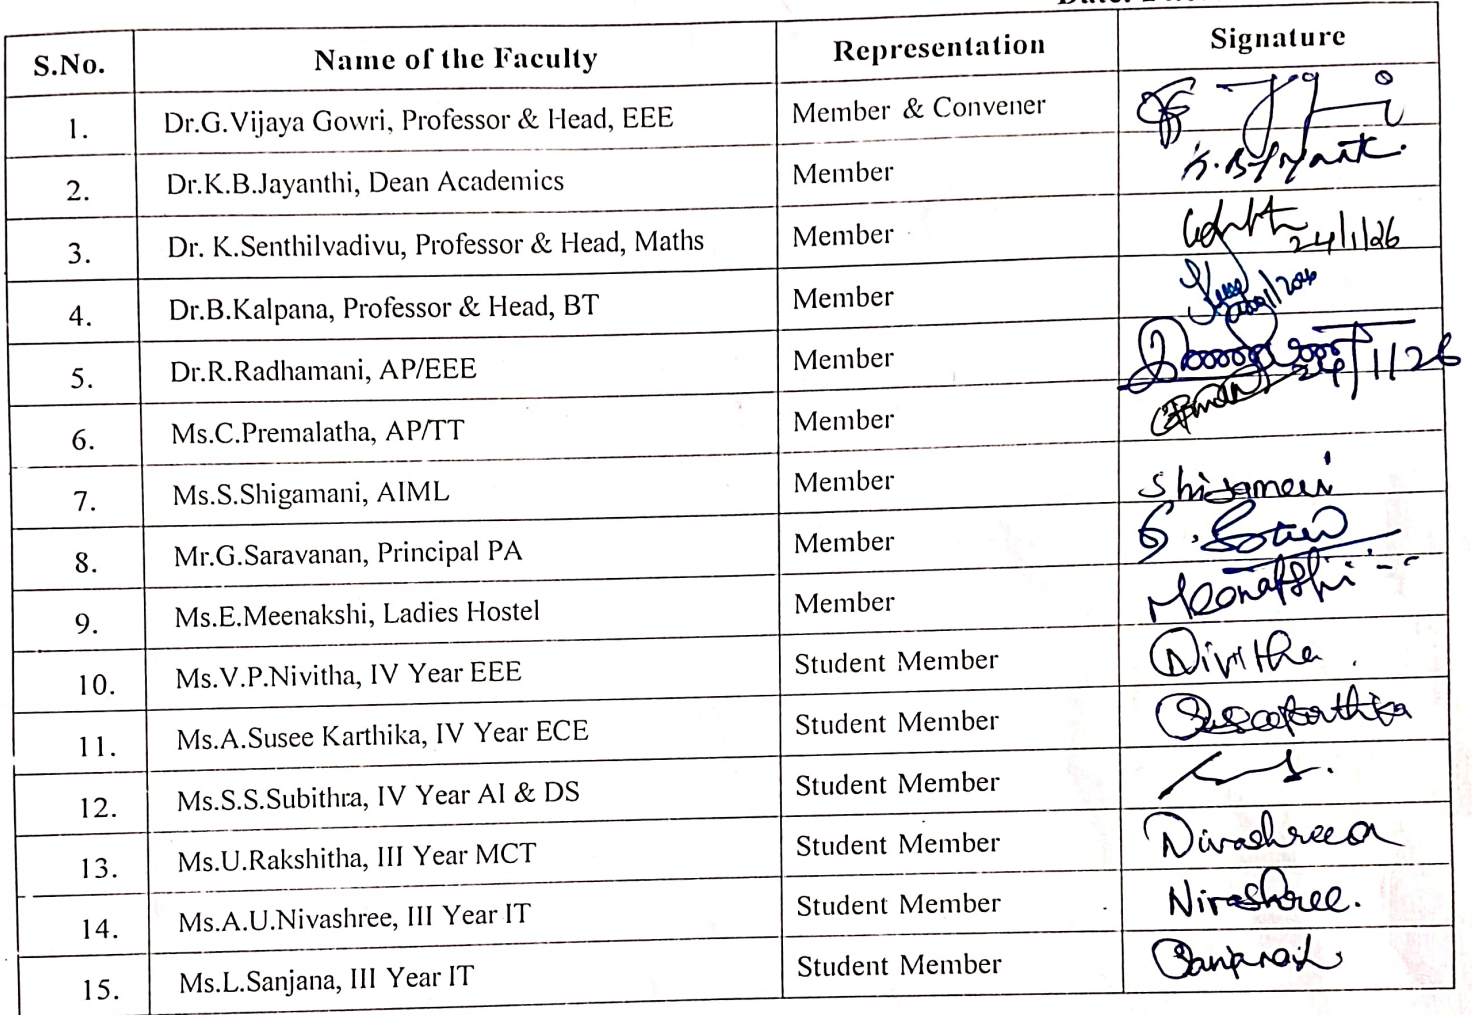 S.No. Name of the Faculty Representation Signature
1. Dr.G.Vijaya Gowri, Professor & Head, EEE Member & Convener
2. Dr.K.B.Jayanthi, Dean Academics Member
3. Dr. K.Senthilvadivu, Professor & Head, Maths Member 24/1/26
4. Dr.B.Kalpana, Professor & Head, BT Member
5. Dr.R.Radhamani, AP/EEE Member 24/1/26
6. Ms.C.Premalatha, AP/TT Member
7. Ms.S.Shigamani, AIML Member Shigamani
8. Mr.G.Saravanan, Principal PA Member
9. Ms.E.Meenakshi, Ladies Hostel Member Meenakshi
10. Ms.V.P.Nivitha, IV Year EEE Student Member Nivitha
11. Ms.A.Susee Karthika, IV Year ECE Student Member Suseekarthika
12. Ms.S.S.Subithra, IV Year AI & DS Student Member
13. Ms.U.Rakshitha, III Year MCT Student Member
14. Ms.A.U.Nivashree, III Year IT Student Member Nivashree.
15. Ms.L.Sanjana, III Year IT Student Member